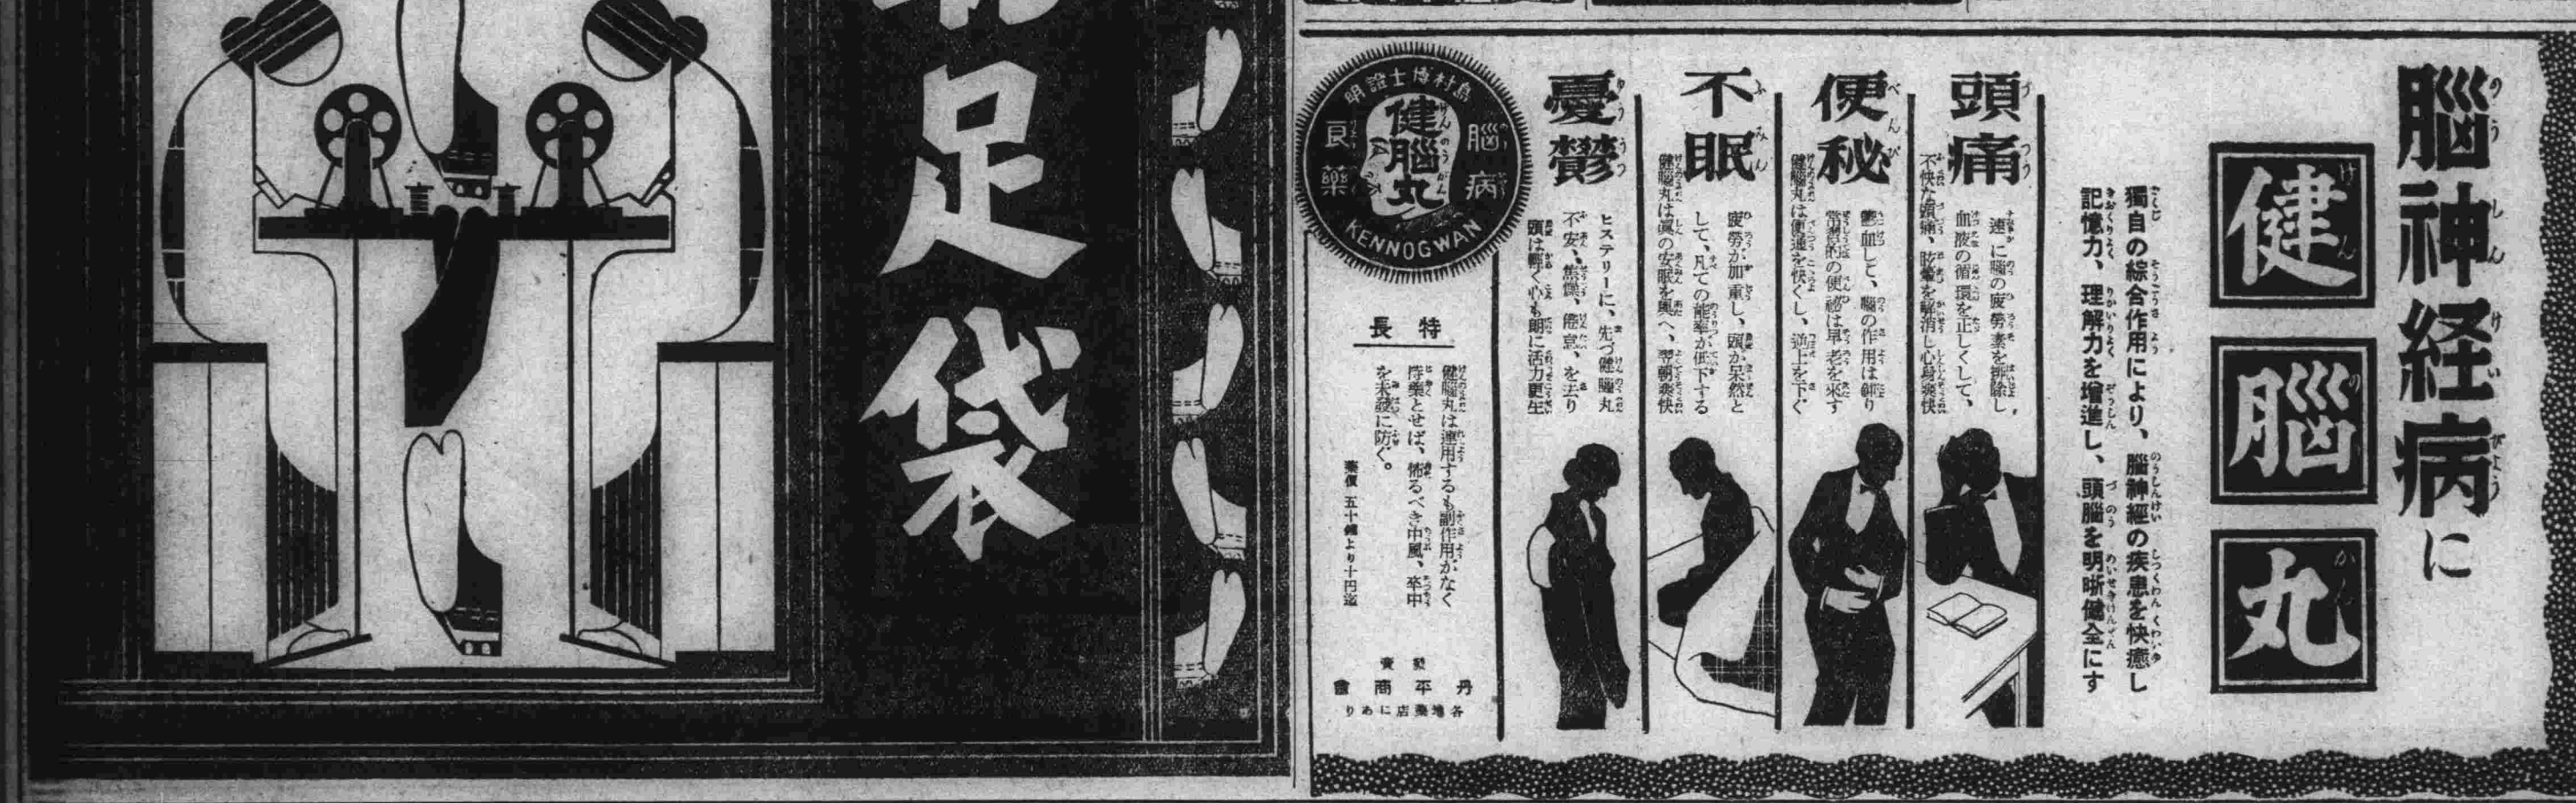 脳神経病に
健
脳
丸
獨自の綜合作用により、脳神經の疾患を快癒し
記憶力、理解力を增進し、頭腦を明晰健全にす
頭痛
速に腦の疲勞素を排除し、
血液の循環を正しくして、
不快な頭痛、眩暈を解消し心身爽快
便秘
鬱血して、腦の作用は鈍り
常習的の便祕は早老を來す
健腦丸は便通を快くし、逆上を下ぐ
不眠
疲勞が加重し、頭が呆然と
して、凡ての能率が低下する
健腦丸は眞の安眠を與へ、翌朝爽快
憂鬱
ヒステリーに、先づ健腦丸
不安、焦燥、倦怠、を去り
頭は輕く心も朗に活力更生
島村博士證明
腦病
健腦丸
良藥
KENNOGWAN
特長
健腦丸は連用するも副作用がなく
持藥とせば、怖るべき中風、卒中
を未發に防ぐ。
藥價 五十錢より十円迄
發賣
丹平商會
各地藥店にあり
足袋